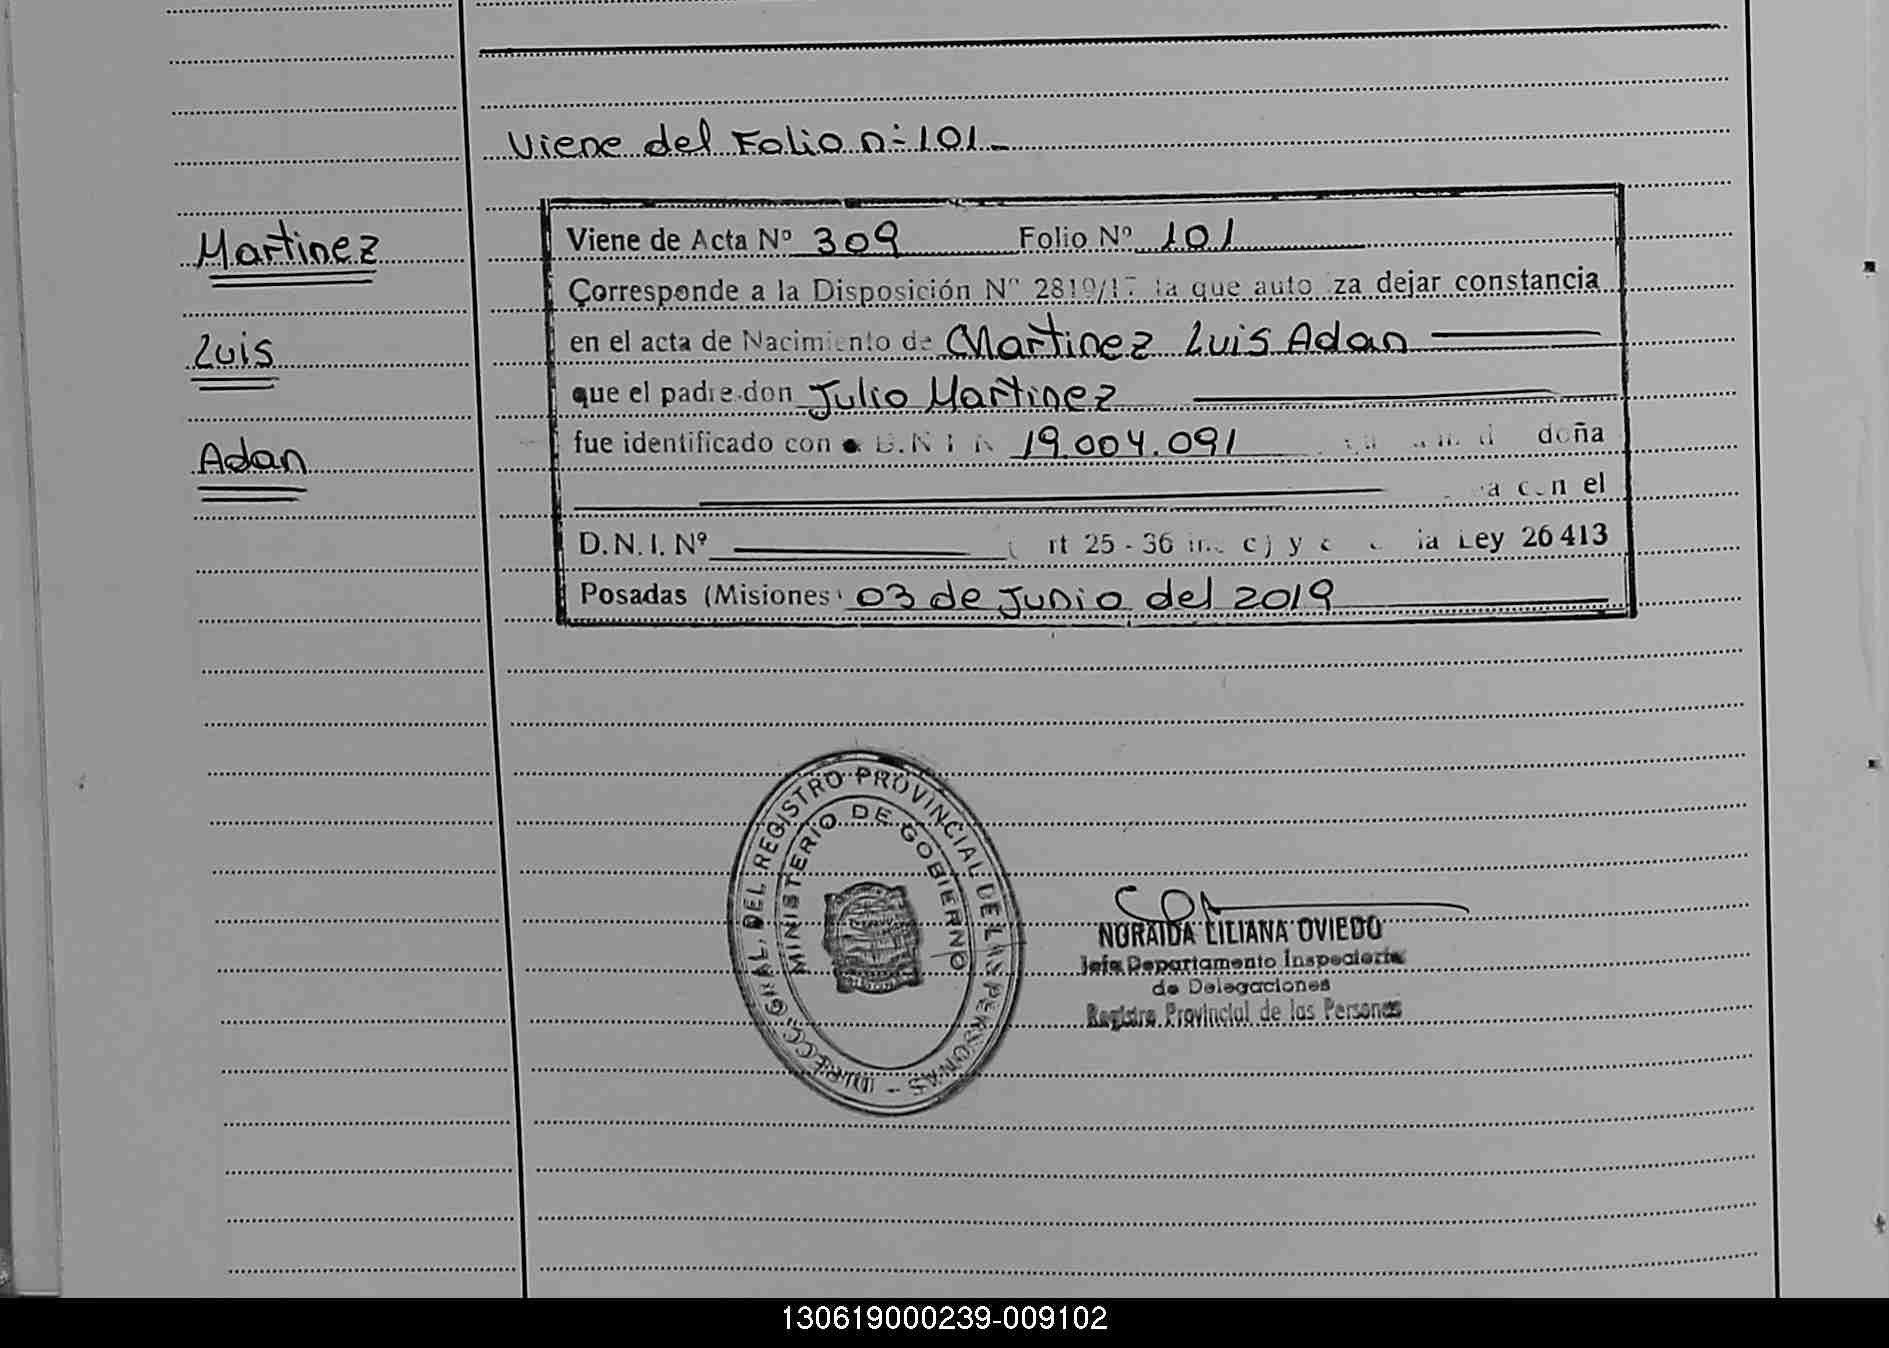 Viene del Folio nº 101-
Martinez
Luis
Adan
Viene de Acta Nº 309 Folio Nº 101
Corresponde a la Disposición Nº 2819/17 la que autoriza dejar constancia
en el acta de Nacimiento de Martinez Luis Adan
que el padre don Julio Martinez
fue identificado con D.N.I. 19.004.091 doña
con el
D.N.I. Nº rt 25 - 36 inc c) y la Ley 26413
Posadas (Misiones) 03 de Junio del 2019
DIRECC. GRAL. DEL REGISTRO PROVINCIAL DE LAS PERSONAS -
MINISTERIO DE GOBIERNO
NORAIDA LILIANA OVIEDO
Jefa Departamento Inspectoria
de Delegaciones
Registro Provincial de las Personas
130619000239-009102